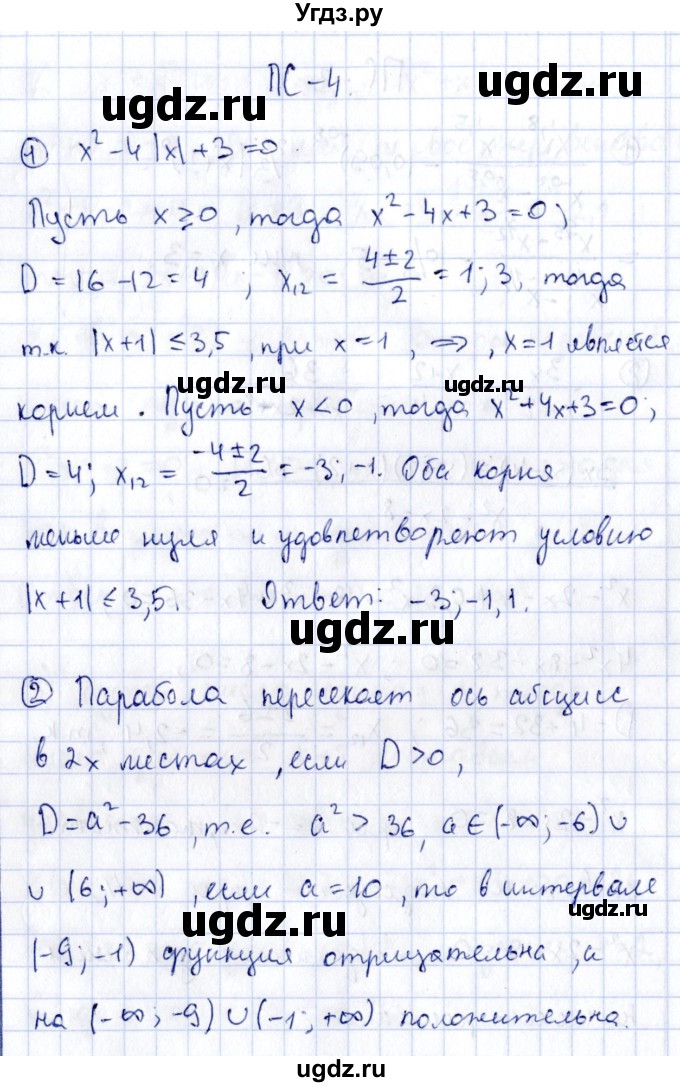 Угдз.ру
ПС-4.
① x²-4|x|+3=0.
Пусть x≥0, тогда x²-4x+3=0;
D=16-12=4; x₁,₂ = (4±2)/2 = 1; 3, тогда
т.к. |x+1| ≤3,5, при x=1, ⇒, x=1 является
корнем. Пусть x<0, тогда x²+4x+3=0;
D=4; x₁,₂ = (-4±2)/2 = -3; -1. Оба корня
меньше нуля и удовлетворяют условию
|x+1| ≤ 3,5. Ответ: -3; -1, 1.
② Парабола пересекает ось абсцисс
в 2х местах, если D>0,
D=a²-36, т.е. a² > 36, a∈(-∞; -6) ∪
∪ (6; +∞), если a=10, то в интервале
(-9; -1) функция отрицательна, а
на (-∞; -9) ∪ (-1; +∞) положительна.
ugdz.ru
ugdz.ru
ugdz.ru
ugdz.ru
ugdz.ru
ugdz.ru
ugdz.ru
ugdz.ru
ugdz.ru